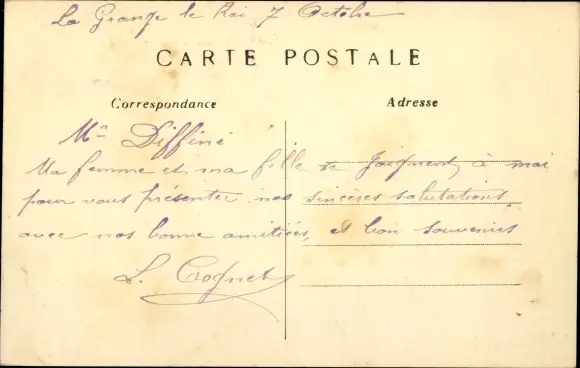 La Grange le Roi 7 Octobre
CARTE POSTALE
Correspondance
Adresse
Mr Diffiné
Ma femme et ma fille se joignent à moi
pour vous présenter nos sincères salutations
avec nos bonne amitiées, et bon souvenirs
L. Crognet